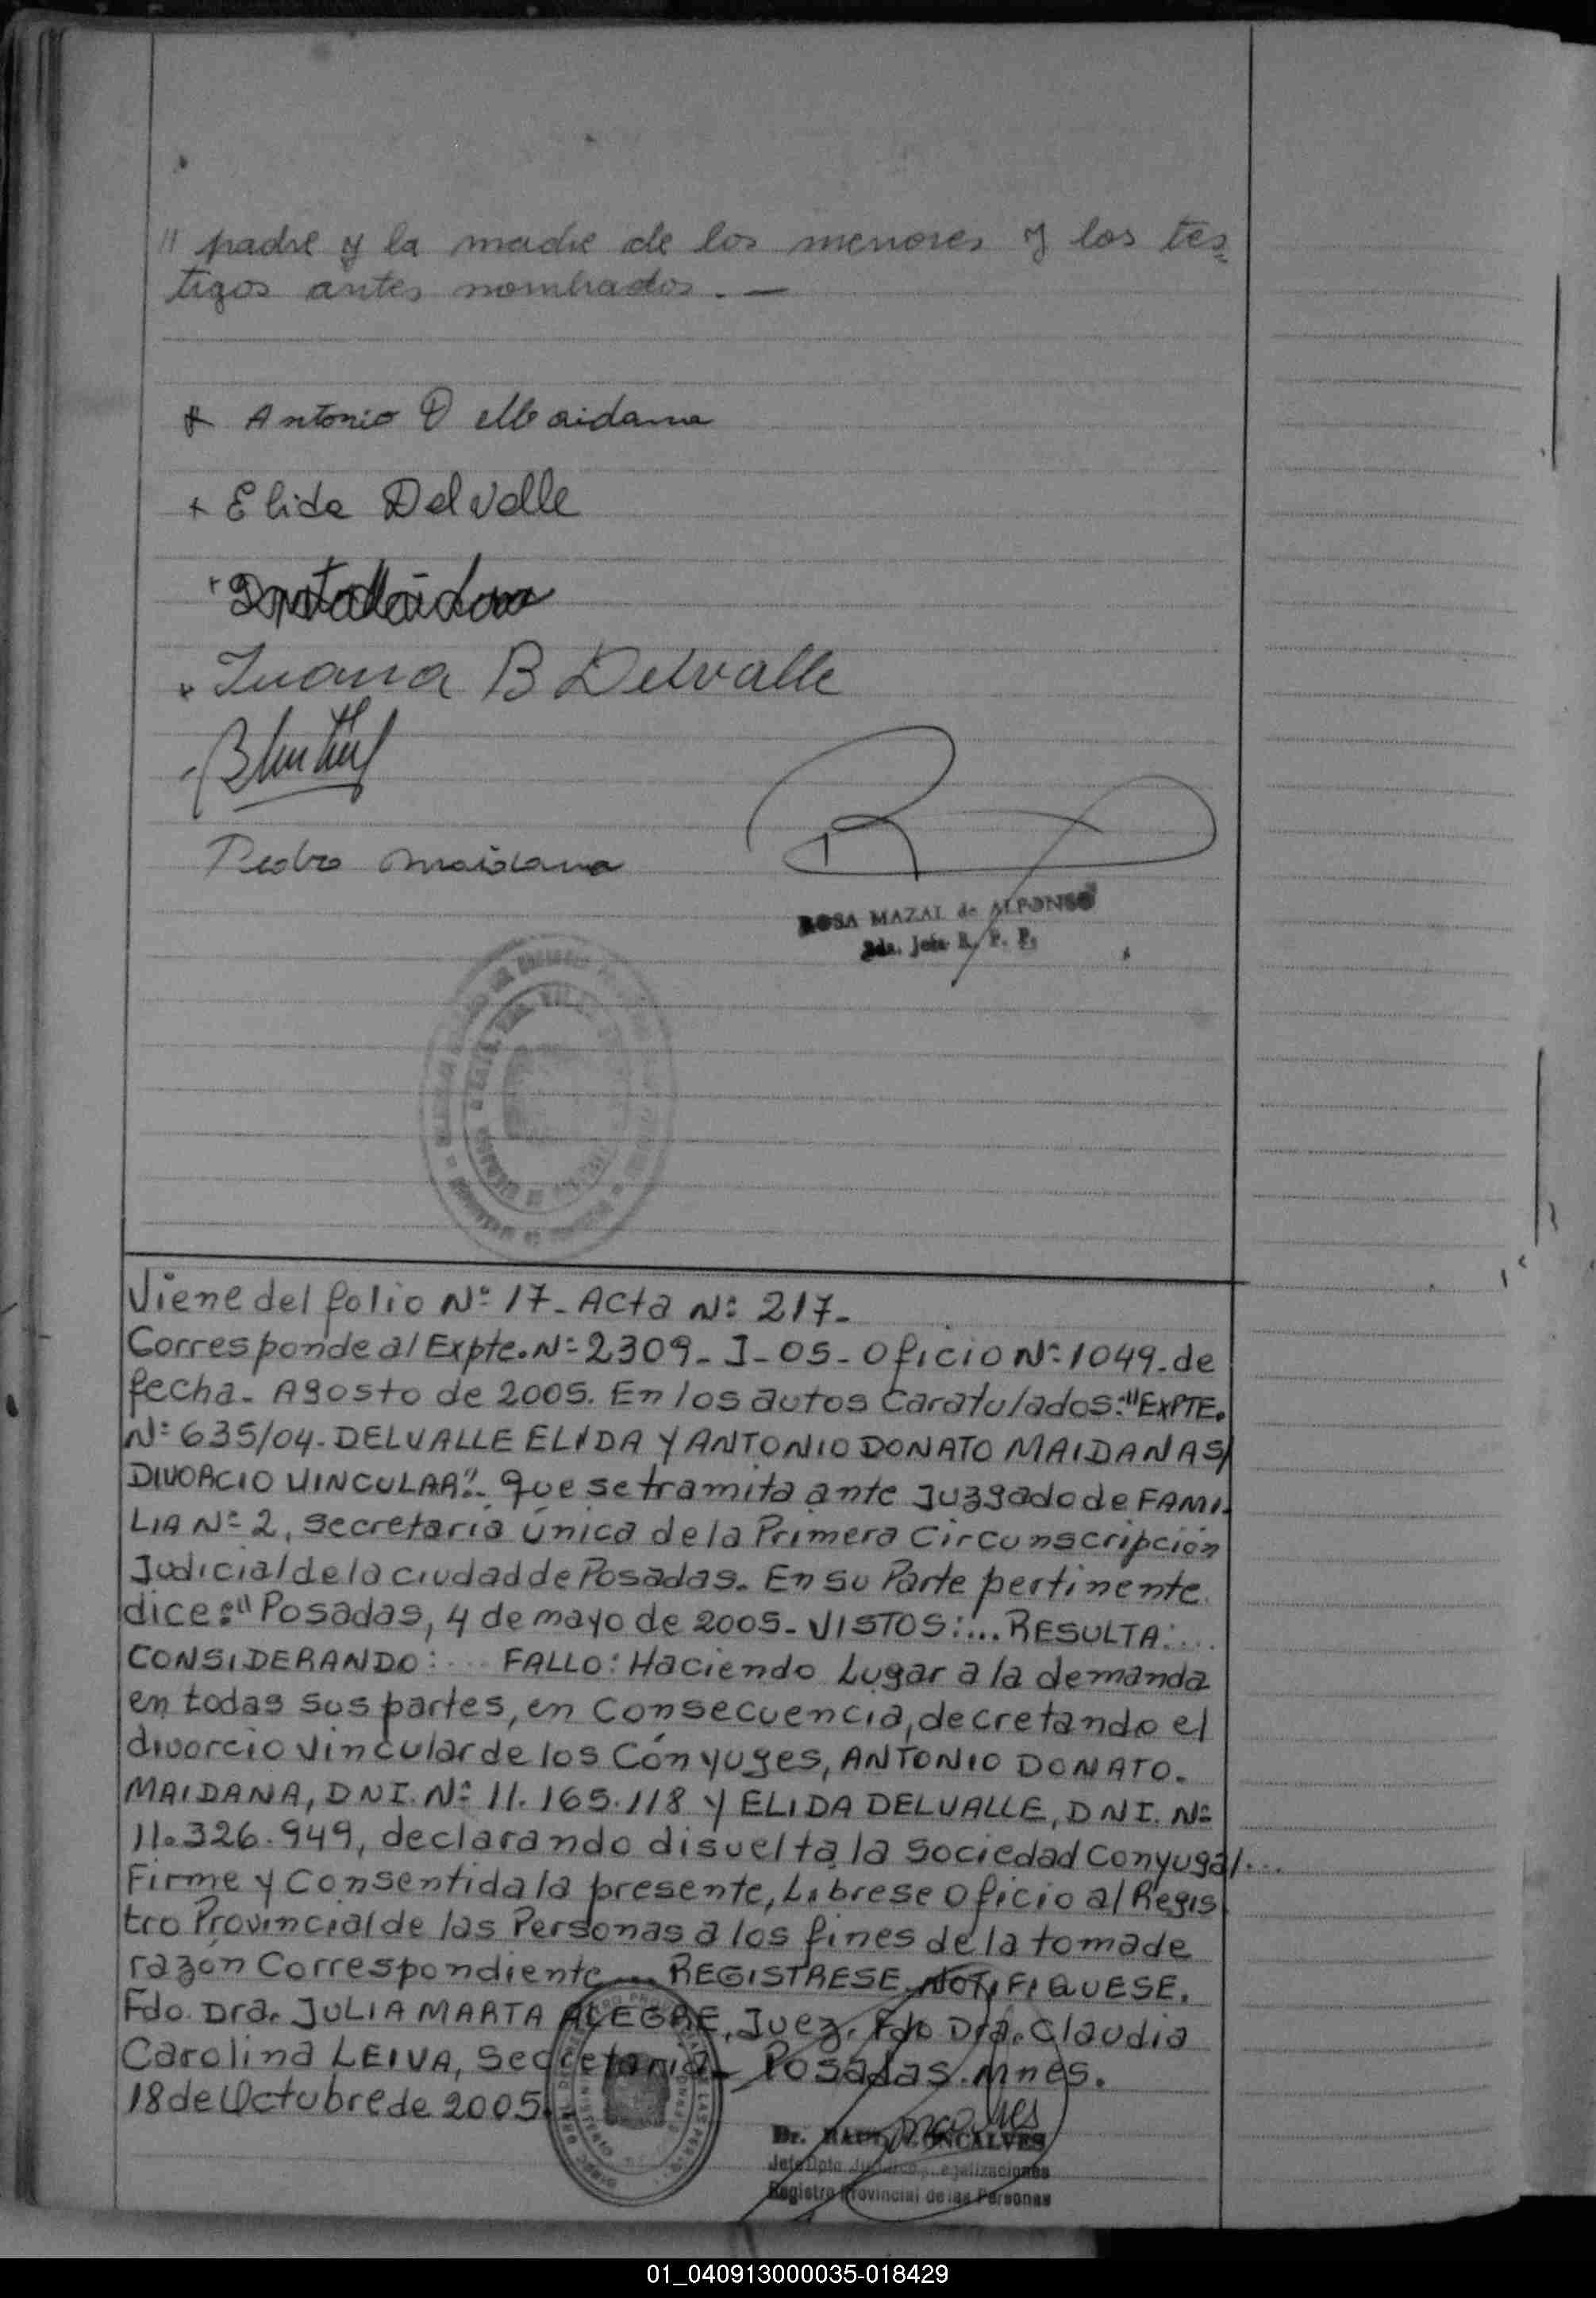 " padre y la madre de los menores y los tes=
tigos antes nombrados. —
x Antonio D Maidana
+ Elida Delvalle
+ Juana B Delvalle
Pedro Maidana
ROSA MAZAL de ALFONSO
Jefa R. P. P.
Viene del folio Nº 17- Acta Nº 217-
Corresponde al Expte. Nº 2309- J-05- Oficio Nº 1049- de
fecha- Agosto de 2005. En los autos Caratulados:"EXPTE.
Nº 635/04- DELVALLE ELIDA Y ANTONIO DONATO MAIDANA S/
DIVORCIO VINCULAR".- que se tramita ante Juzgado de FAMI-
LIA Nº 2, secretaría Única de la Primera Circunscripción
Judicial de la ciudad de Posadas. En su Parte pertinente
dice:" Posadas, 4 de mayo de 2005- VISTOS:... RESULTA:...
CONSIDERANDO:... FALLO: Haciendo Lugar a la demanda
en todas sus partes, en Consecuencia, decretando el
divorcio Vincular de los Cónyuges, ANTONIO DONATO.
MAIDANA, DNI. Nº 11.165.118 Y ELIDA DELVALLE, DNI. Nº
11.326.949, declarando disuelta la sociedad Conyugal...
Firme y Consentida la presente, Librese Oficio al Regis
tro Provincial de las Personas a los fines de la toma de
razón Correspondiente... REGISTRESE. NOTIFIQUESE.
Fdo. Dra. JULIA MARTA ALEGRE, Juez. Fdo Dra. Claudia
Carolina LEIVA, Secretaria- Posadas. Mnes.
18 de Octubre de 2005.
Dr. RAUL GONCALVES
Jefe Dpto. Legalizaciones
Registro Provincial de las Personas
01_040913000035-018429